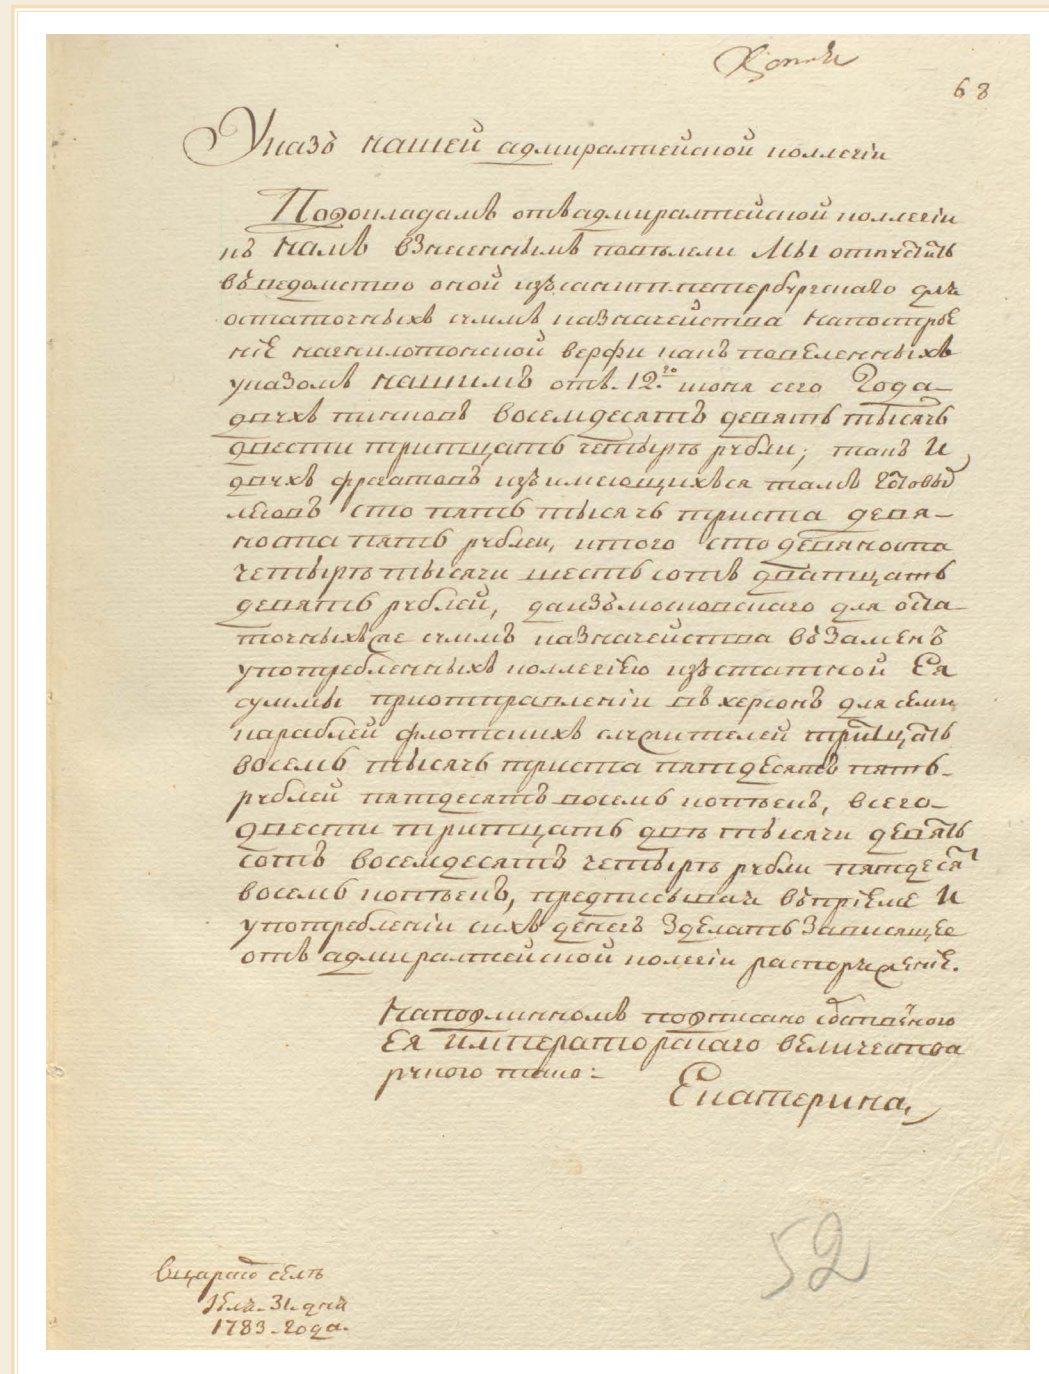 Копия
68
Указъ нашей адмиралтейской коллегіи
Подокладамъ отъ адмиралтейской коллегіи
къ намъ взнесеннымъ повелели Мы отпустить
въ ведомство оной изъ санктпетербургскаго для
остаточныхъ суммъ казначейства напострое
ніе накнилотонской верфи какъ повеленныхъ
указомъ нашимъ отъ 12.го июня сего года
двухъ пинковъ восемдесятъ девять тысячь
двести тритцать четыре рубли; такъ и
двухъ фрегатовъ изъ имеющихся тамъ готовы
лесовъ сто пять тысячь триста девя-
носта пять рублей, итого сто девяноста
четыре тысячи шесть сотъ дватцать
девять рублей, да изъ московскаго для оста-
точныхъ же суммъ казначейства въ замѣнъ
употребленныхъ коллегіею изъ статной Ея
суммы приотправленіи въ херсонъ для семи
караблей флотскихъ служителей тритцать
восемь тысячь триста пятдесятъ пять-
рублей пятдесятъ восемь копѣекъ, всего-
двести тритцать двѣ тысячи девять
сотъ восемдесятъ четыре рубли пятдеся
восемь копѣекъ, предписывая въ пріеме и
употребленіи сихъ денегъ зделать зависящее
отъ адмиралтейской колегіи распоряженіе.
Наподлинномъ подписано собственного
Ея императорскаго величества
рукого тако:
Екатерина,
Вцарско селѣ
Іюля 31. дня
1783. года.
52